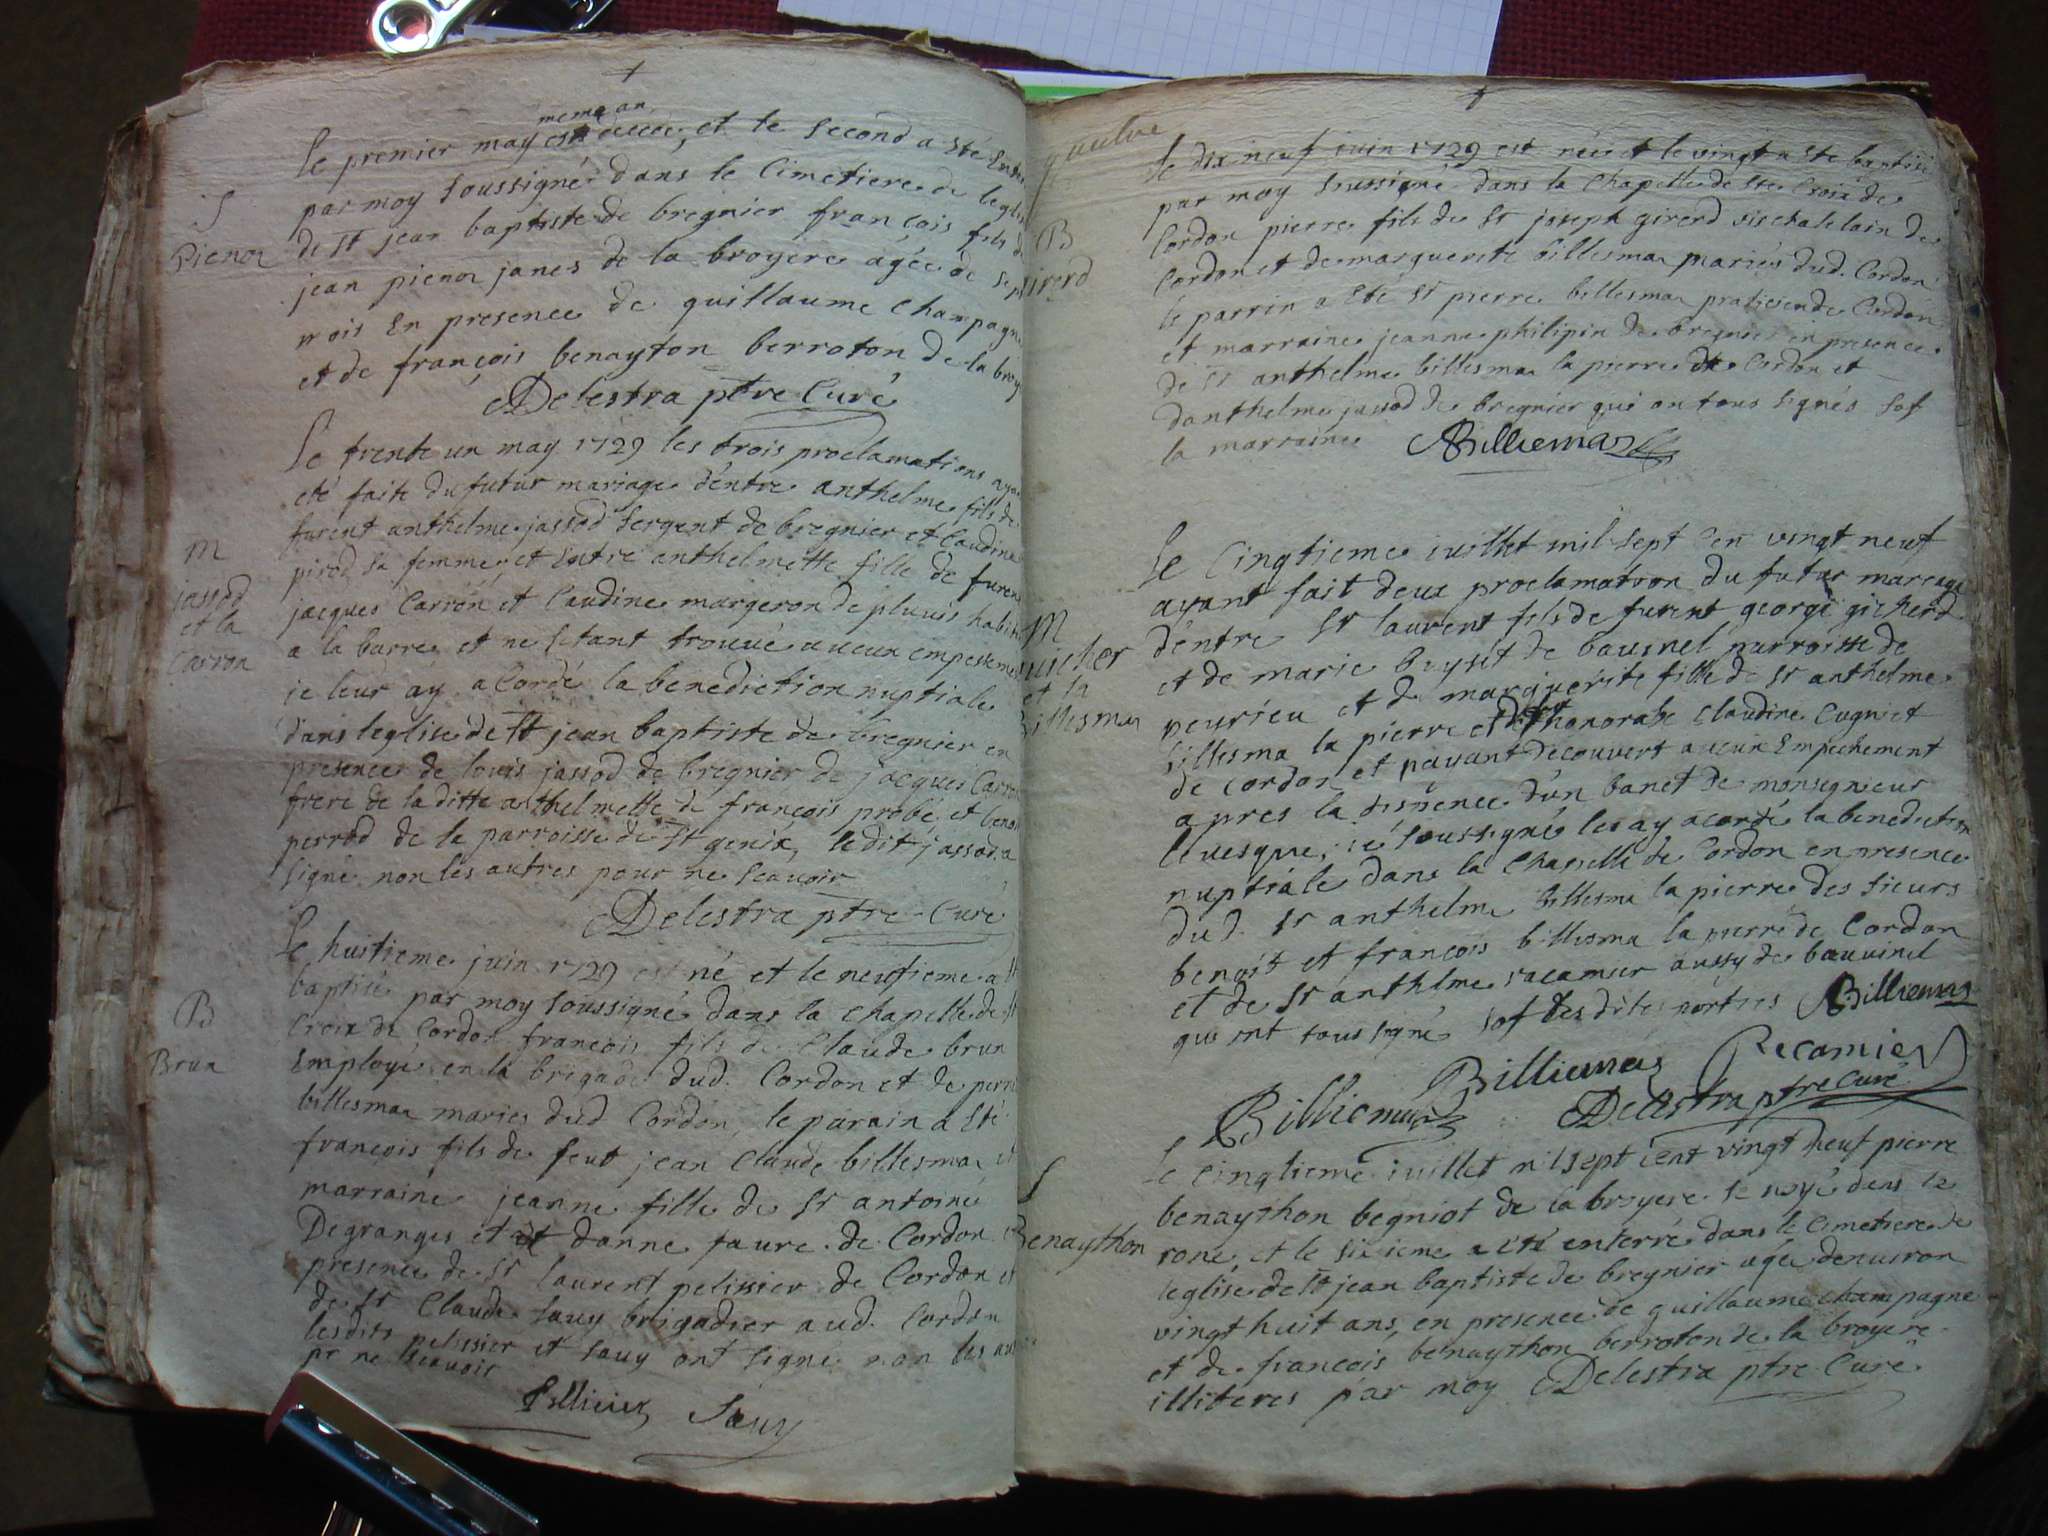 Le premier may est decedé et le second a esté Enter
meme an
par moy soussigné dans le Cimetiere de leglise
S
de St jean baptiste de bregnier françois fils de
Pienoz
jean pienoz janes de la broyere agée de sept
mois En presence de guillaume Champagne
et de françois benayton berroton de la broy
Delestra ptre Curé
Le trente un may 1729 les trois proclamations ayant
eté faite du futur mariage d'entre anthelme fils de
furent anthelme jassod sergent de bregnier et Caudine
M
jassod
et la
Carron
pirod sa femme et Entre anthelmette fille de furent
jacques Carron et Caudine margeron de pluvis habita
a la barre et ne s'etant trouvé aucun empessement
je leur ay acordé la benediction nuptiale
dans leglise de St jean baptiste de bregnier en
presence de louis jassod de bregnier de jacques Carron
frere de la ditte anthelmette de françois probé et benoi
perrod de le parroisse de St genix, ledit jassod a
signé non les autres pour ne scavoir
Delestra ptre Curé
Le huitieme juin 1729 est né et le neufieme a été
baptisé par moy soussigné dans la Chapelle de St
B
Brun
Croix de Cordon françois fils de Claude brun
Employé en la brigade dud. Cordon et de pern
billesmaz mariés dud Cordon, le parain a Eté
françois fils de feut jean Claude billesmaz et
marraine jeanne fille de Sr antoine
Degranges et danne faure de Cordon en
presence de Sr laurent pelissier de Cordon et
de Sr Claude sauy brigadier aud. Cordon
lesdits pelissier et sauy ont signé non les autres
pr ne sceavoir
Pellicier Sauy
quatre
Le dix neuf juin 1729 est née et le vingt a esté baptisé
par moy soussigné dans la Chapelle de Ste Croix de
B
girerd
Cordon pierre fils de Sr joseph girerd vischatelain de
Cordon et de marguerite billesmaz mariés dud. Cordon
le parrin a Eté Sr pierre billesmaz praticien de Cordon
et marraine jeanne philipin de bregnier en presence
de Sr anthelme billesmaz la pierre de Cordon et
danthelme jassod de bregnier qui on tous signés sof
la marraine Billiemaz
Le Cinqtieme juillet mil sept Cen vingt neuf
ayant fait deux proclamation du futur mareage
d'entre Sr laurent fils de furent george gicherd
M
guicher
et la
billesmaz
et de marie beysit de bauvnel parroisse de
peurieu et de marguerite fille de Sr anthelme
billesma la pierre et dhonorable Claudine Cugniet
de Cordon et nayant decouvert aucun Empechement
apres la dispence d'un banet de monsegnieur
levesque, je soussigné les ay acordé la benediction
nuptiale dans la Chapelle de Cordon en presence
dud. Sr anthelme billesma la pierre des sieurs
benoit et françois billiesma la pierre de Cordon
et de Sr anthlme racamier aussy de bauvinel
qui ont tous signé sof les dites partiés Billiemaz
Billiemaz Recamier
Billiemaz Delestra ptre Curé
Le Cinqtieme juillet mil sept Cent vingt neuf pierre
S
Benaython
benaython begniot de la broyere se noyé dens le
rone, et le sixieme a eté enterré dans le Cimetiere de
leglise de St jean baptiste de bregnier agé denviron
vingt huit ans, en presence de guillaume champagne
et de françois benaython berroton de la broyere
illiteres par moy Delestra ptre Curé